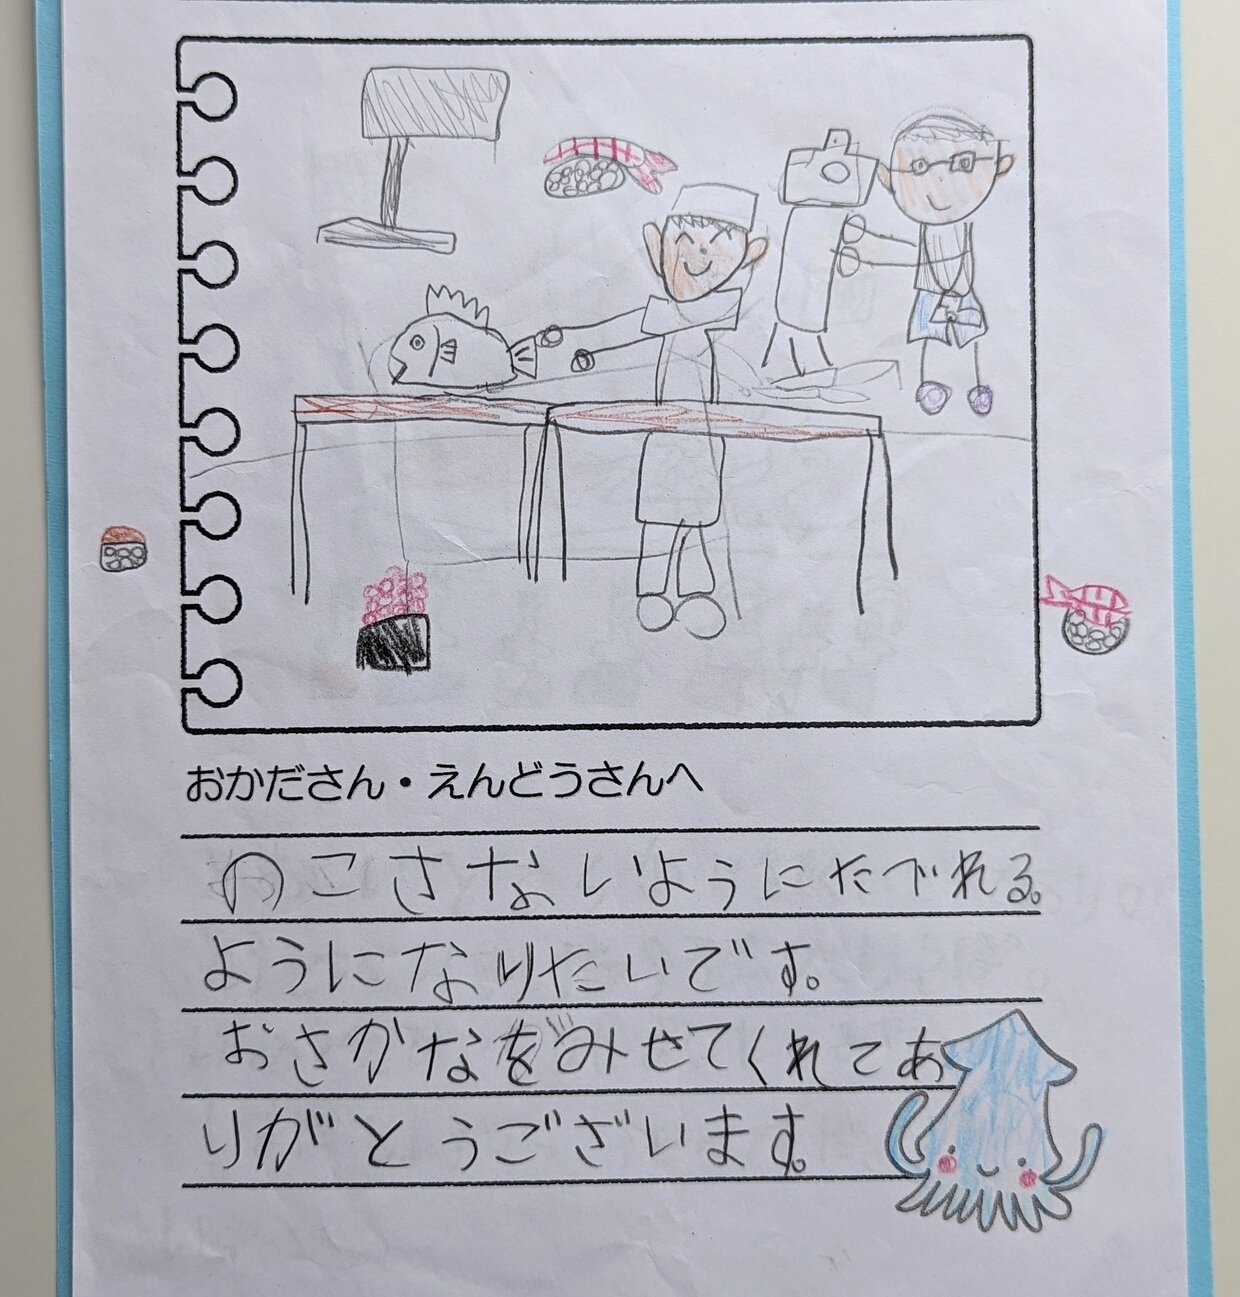 おかださん・えんどうさんへ
のこさないようにたべれる。
ようになりたいです。
おさかなをみせてくれてあ
りがとうございます。